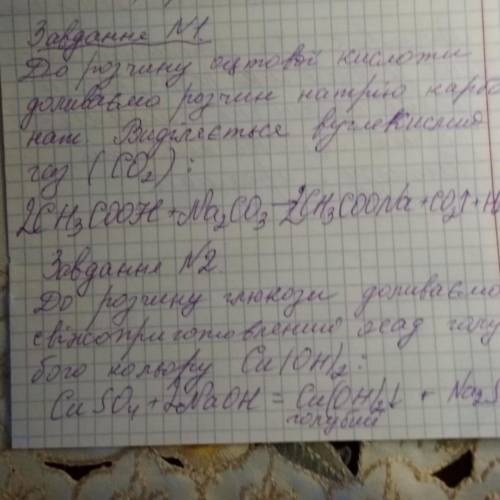 Завдання №1
До розчину оцтової кислоти
доливаємо розчин натрію карбо
нат. Виділяється вуглекислий
газ (CO₂):
2CH₃COOH + Na₂CO₃ → 2CH₃COONa + CO₂↑ + H
Завдання №2
До розчину глюкози доливаємо
свіжоприготовлений осад голу
бого кольору Cu(OH)₂:
CuSO₄ + 2NaOH = Cu(OH)₂↓ + Na₂S
голубий